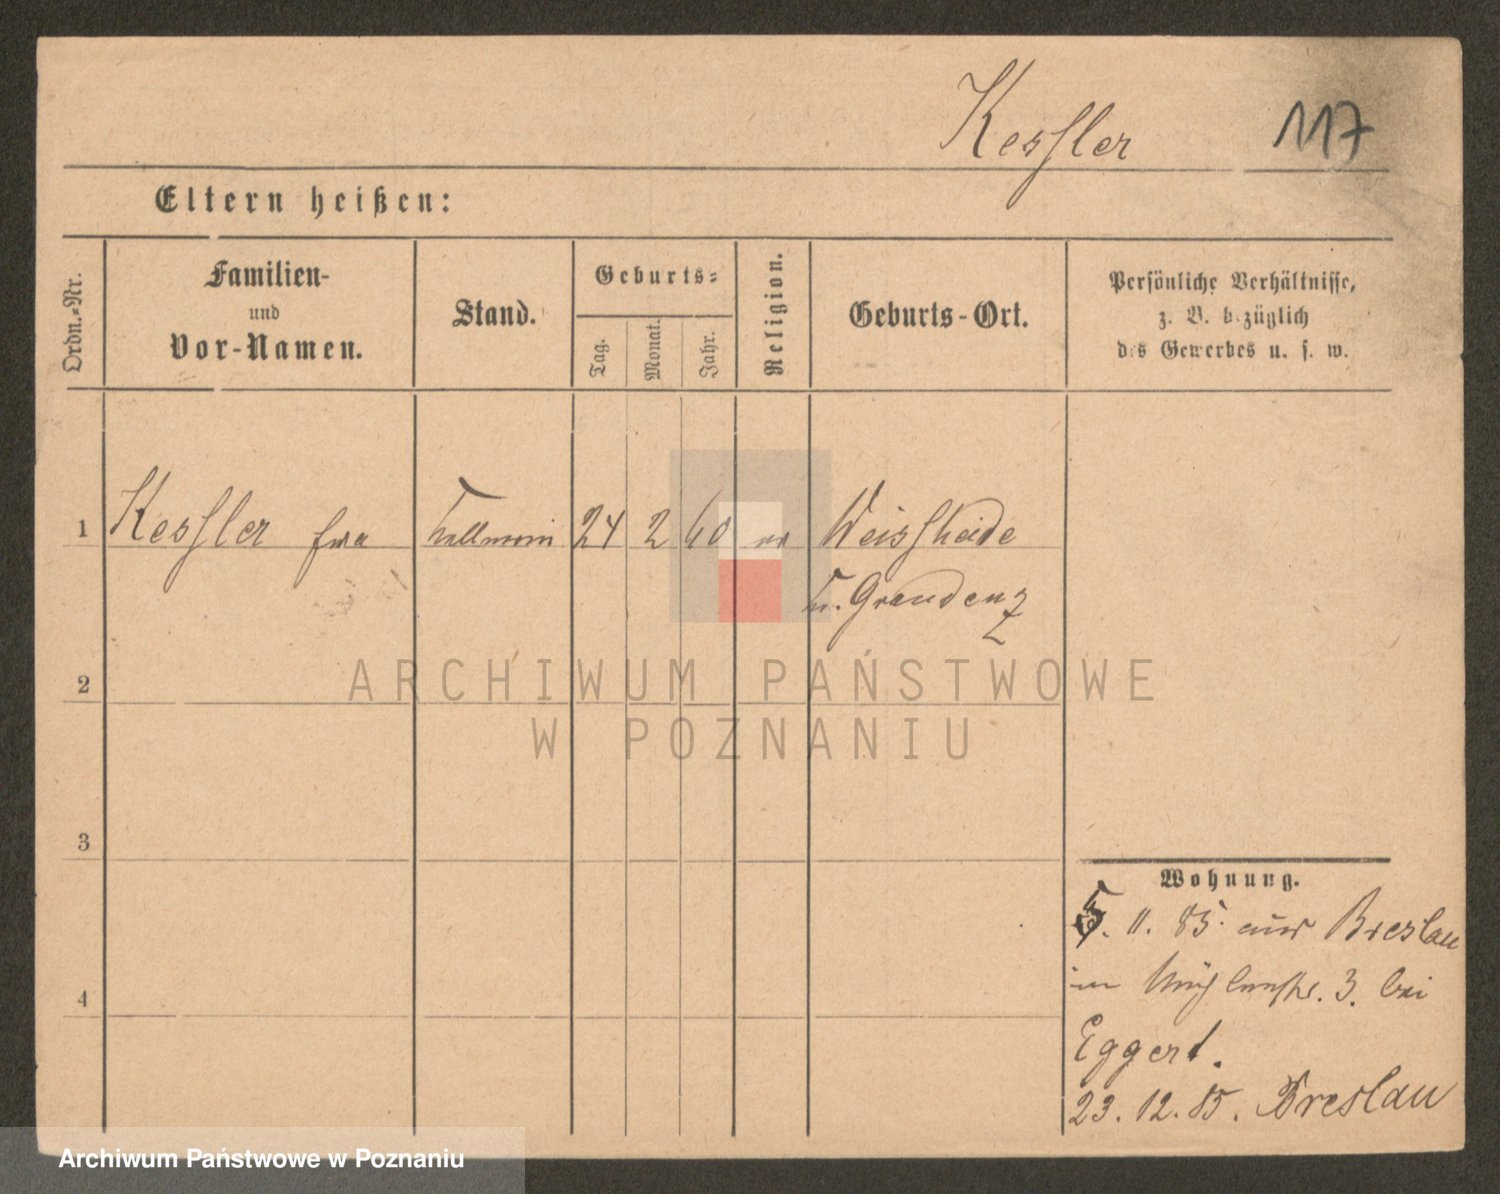 Kessler 117
Eltern heißen:
Ordn.-Nr.
Familien-
und
Vor-Namen.
Stand.
Geburts-
Tag.
Monat.
Jahr.
Religion.
Geburts-Ort.
Persönliche Verhältnisse,
z. B. bezüglich
des Gewerbes u. s. w.
1 Kessler Kellnerin 24 2 60 ev Weissheide
b. Graudenz
2
3
4
Wohnung.
5. 11. 85 aus Breslau
in Mühlenstr. 3. bei
Eggert.
23. 12. 85. Breslau
ARCHIWUM PAŃSTWOWE
W POZNANIU
Archiwum Państwowe w Poznaniu